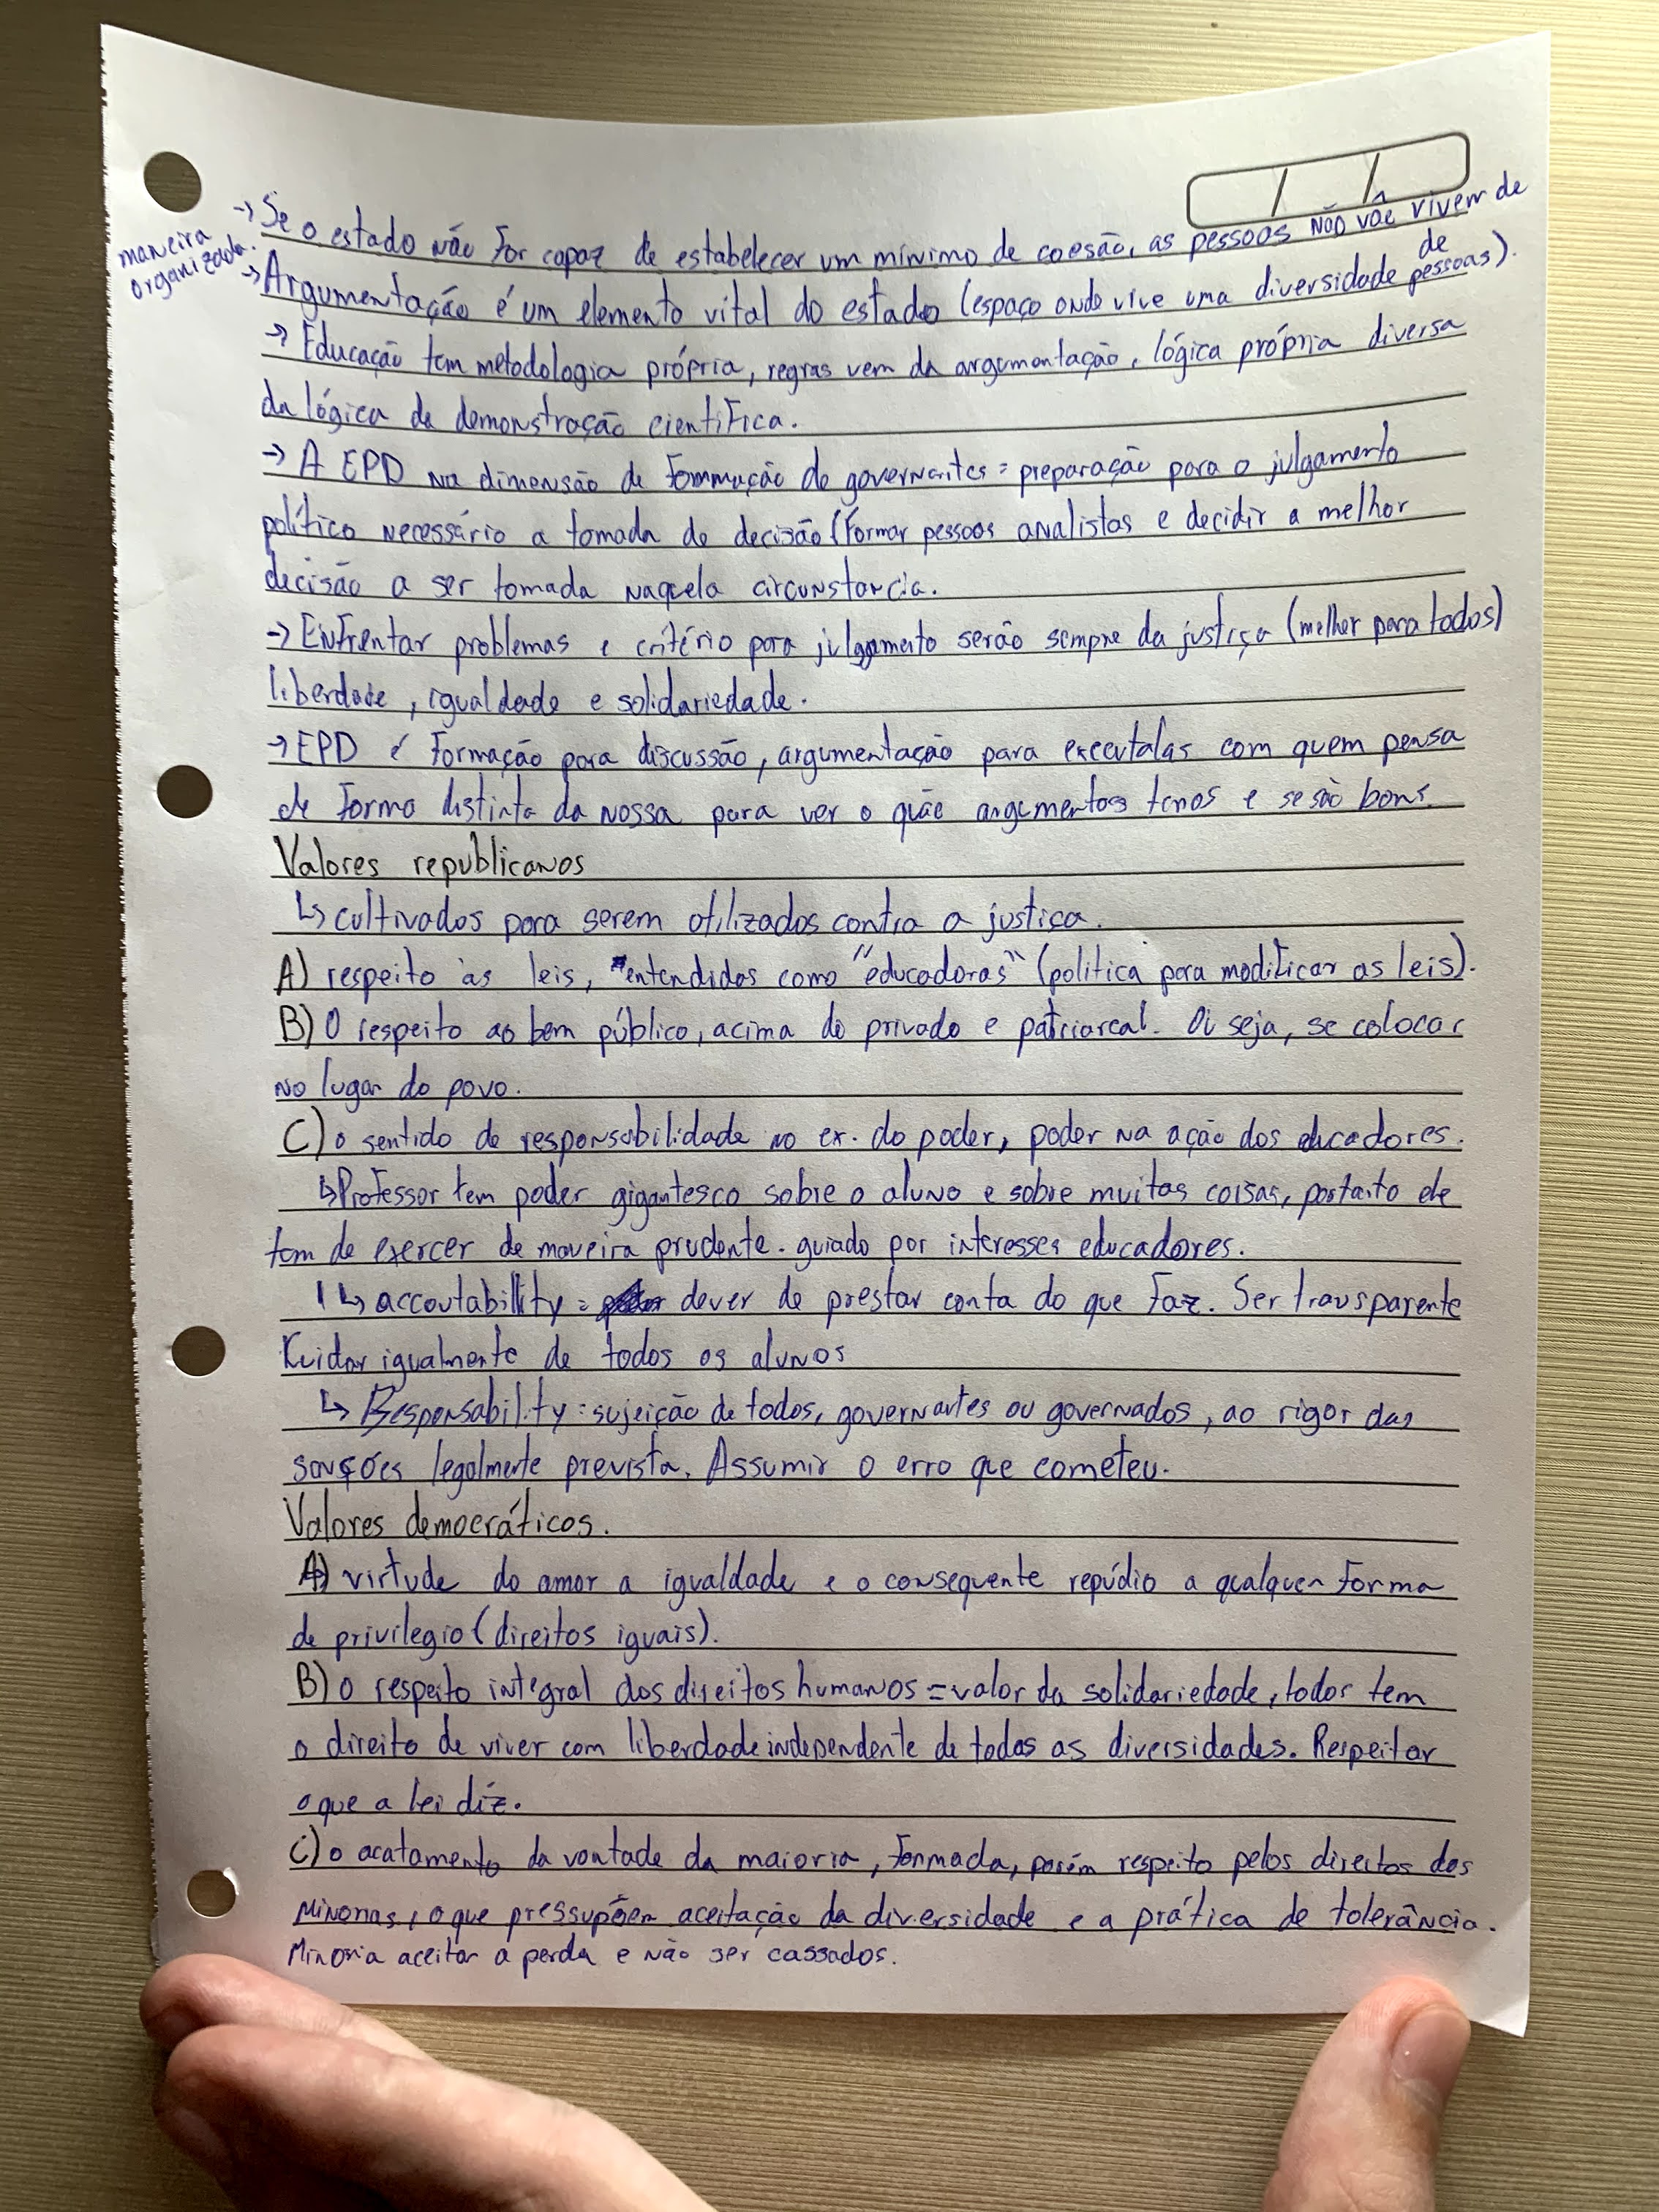 → Se o estado não for capaz de estabelecer um mínimo de coesão, as pessoas não vãe vivem de
maneira
organizada.
→ Argumentação é um elemento vital do estado (espaço onde vive uma diversidade de pessoas).
→ Educação tem metodologia própria, regras vem da argumentação, lógica própria diversa
da lógica de demonstração cientifica.
→ A EPD na dimensão de formmação de governantes = preparação para o julgamento
político necessário a tomada de decisão (formar pessoas analistas e decidir a melhor
decisão a ser tomada naquela circunstancia.
→ Enfrentar problemas e critério para julgamento serão sempre da justiça (melhor para todos)
liberdade, igualdade e solidariedade.
→ EPD é formação para discussão, argumentação para executalas com quem pensa
de forma distinta da nossa para ver o quãe argumentos temos e se são bons.
Valores republicanos
↳ cultivados para serem utilizados contra a justiça.
A) respeito às leis, entendidos como "educadoras" (politica para modificar as leis).
B) O respeito ao bem público, acima do privado e patriarcal. Oi seja, se colocar
no lugar do povo.
C) o sentido de responsabilidade no ex. do poder, poder na ação dos educadores.
↳ Professor tem poder gigantesco sobre o aluno e sobre muitas coisas, portanto ele
tem de exercer de maneira prudente. guiado por interesses educadores.
↳ accoutability = dever de prestar conta do que faz. Ser transparente
Kuidar igualmente de todos os alunos
↳ Responsability: sujeição de todos, governantes ou governados, ao rigor das
sanções legalmente prevista. Assumir o erro que cometeu.
Valores democráticos.
A) virtude do amor a igualdade e o consequente repúdio a qualquer forma
de privilegio (direitos iguais).
B) o respeito integral dos direitos humanos = valor da solidariedade, todos tem
o direito de viver com liberdade independente de todas as diversidades. Respeitar
o que a lei diz.
C) o acatamento da vontade da maioria, formada, porém respeito pelos direitos das
minorias, o que pressupõem aceitação da diversidade e a prática de tolerância.
Minoria aceitar a perda e não ser cassados.